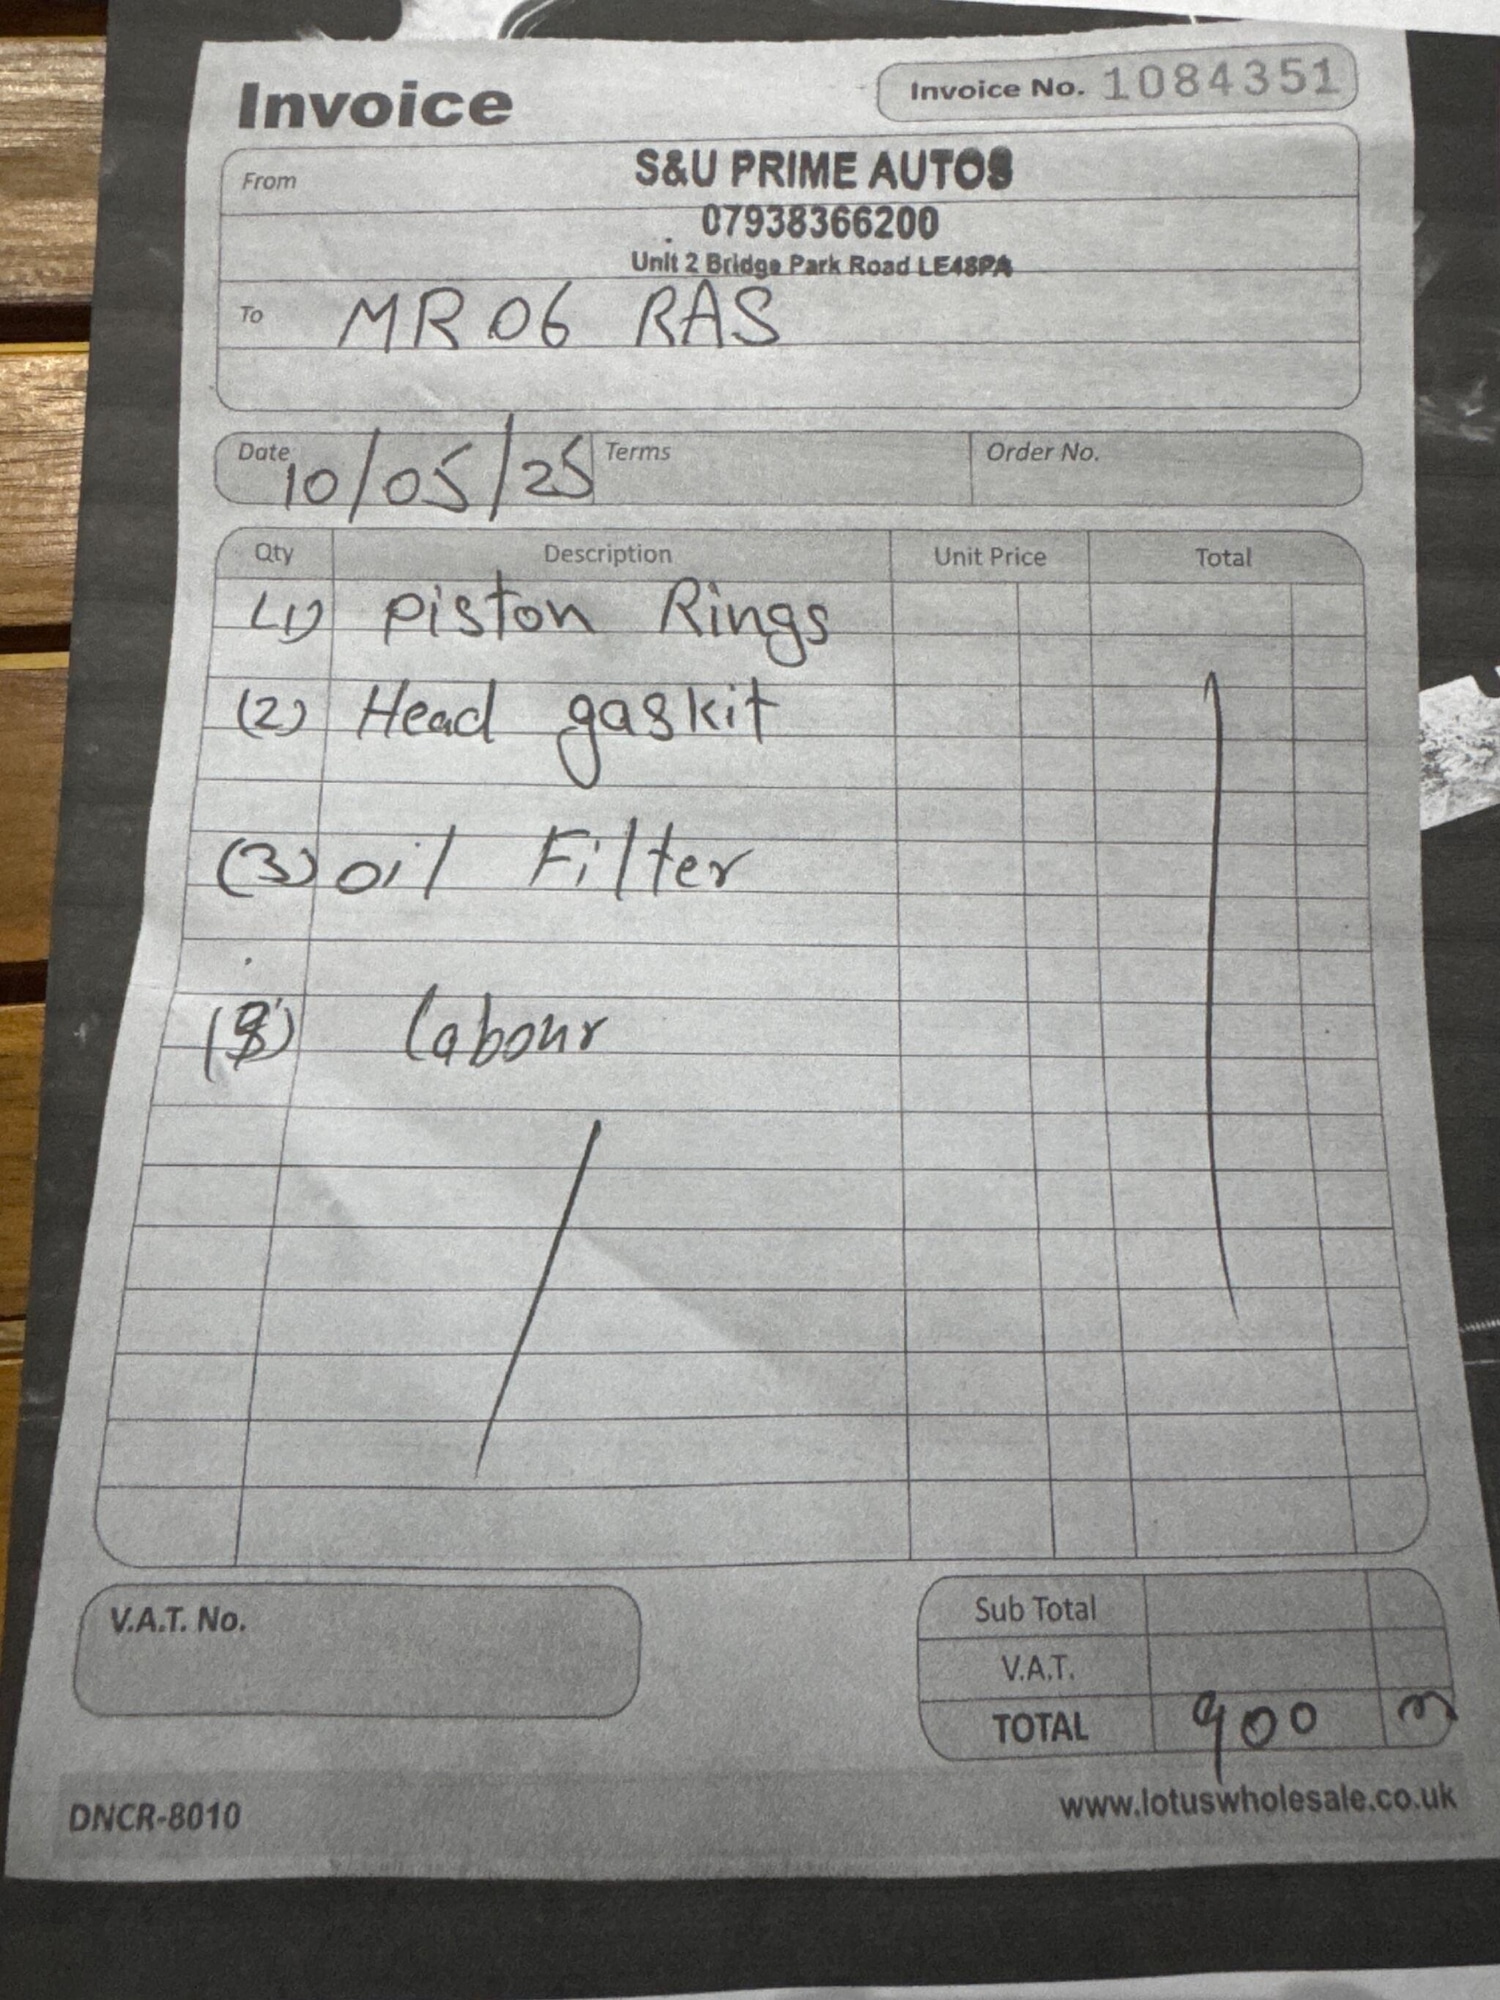 Invoice
Invoice No. 1084351
From
S&U PRIME AUTOS
07938366200
Unit 2 Bridge Park Road LE48PA
To MR06 RAS
Date 10/05/25 Terms Order No.
Qty Description Unit Price Total
(1) Piston Rings
(2) Head gaskit
(3) oil Filter
labour
V.A.T. No.
Sub Total
V.A.T.
TOTAL 900
DNCR-8010
www.lotuswholesale.co.uk